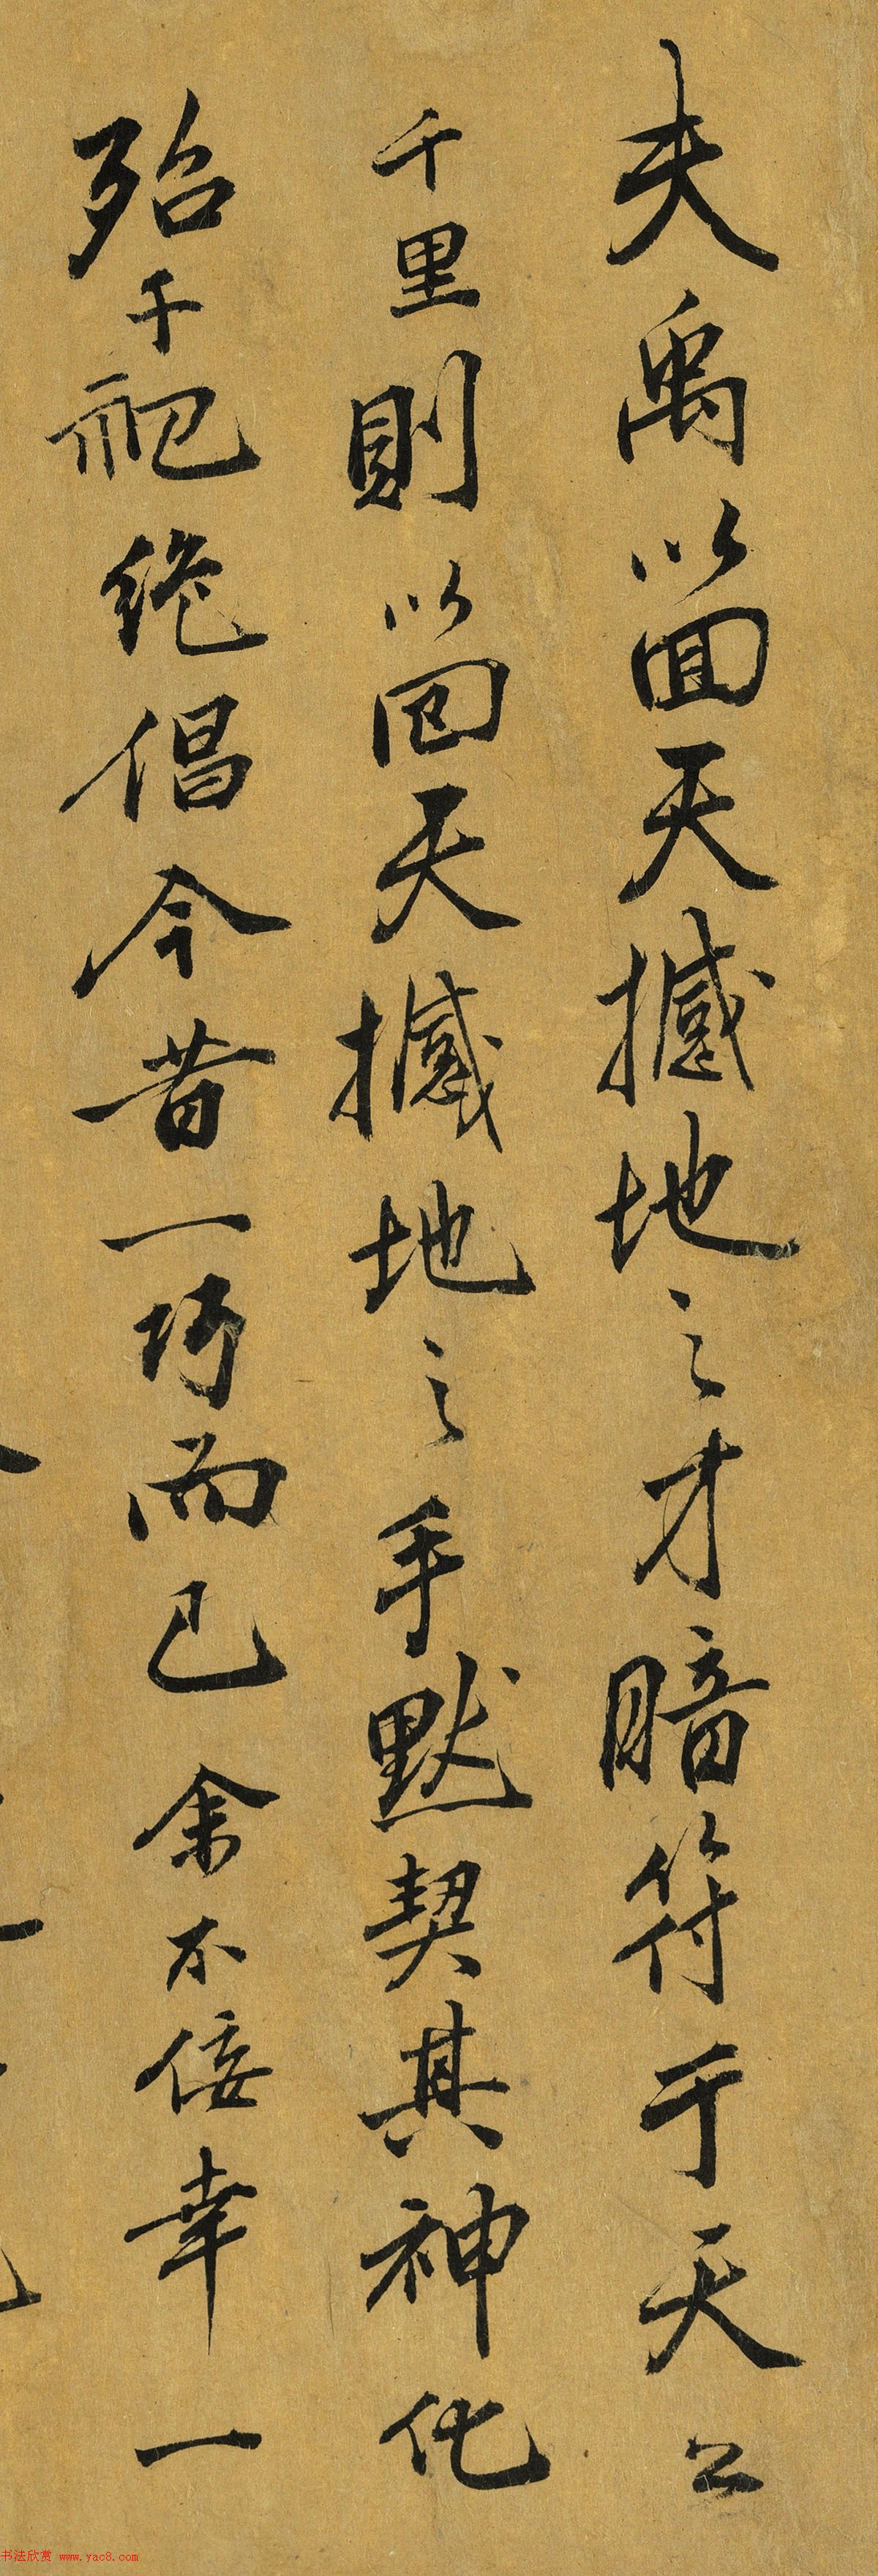 夫禹以回天撼地之才暗符于天公
千里則以回天撼地之手默契其神化
殆千祀绝倡今昔一巧而已余不佞幸一
书法欣赏 www.yac8.com